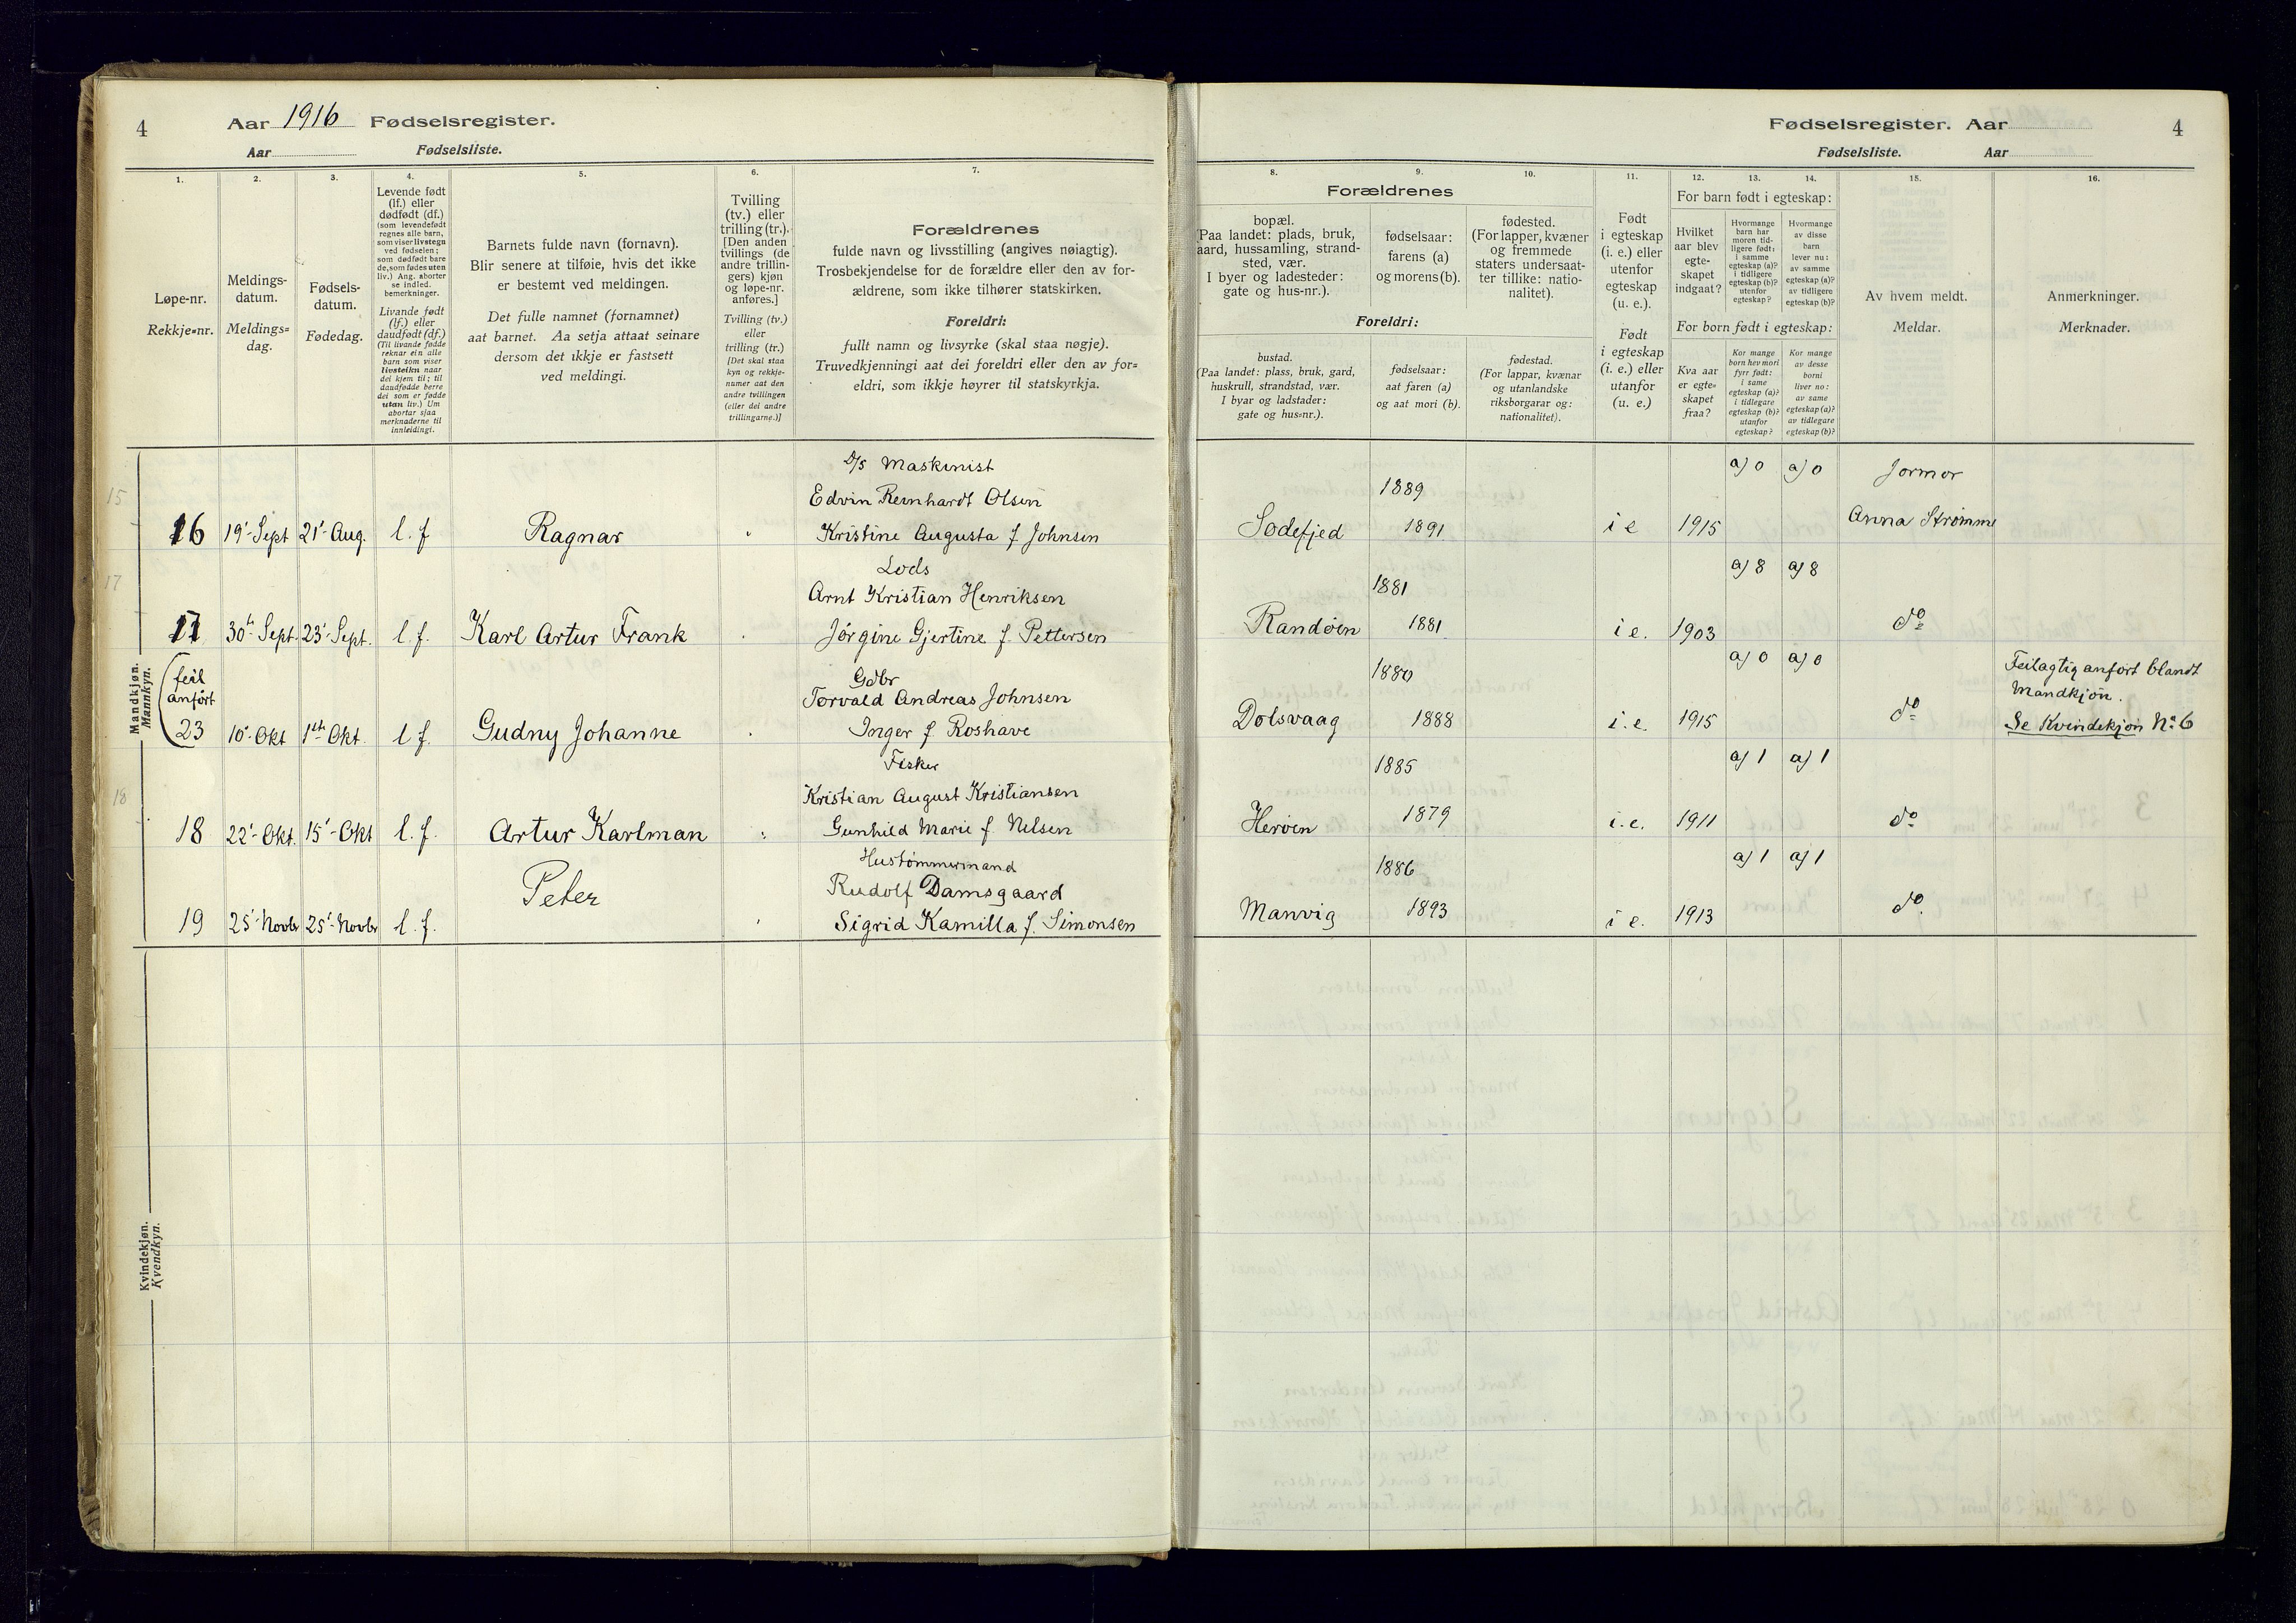 4
Aar 1916 Fødselsregister.
Aar Fødselsliste.
1.
2.
3.
4.
5.
6.
7.
Løpe-nr.
Rekkje=nr.
Meldings-
datum.
Meldings=
dag.
Fødsels-
datum.
Fødedag.
Levende født
(lf.) eller
dødfødt (df.)
(som levendefødt
regnes alle barn,
som viser livstegn
ved fødselen;
som dødfødt bare
de, som fødes uten
liv.) Ang. aborter
se indled.
bemerkninger.
Livande født
(lf.) eller
daudfødt (df.)
(Til livande fødde
reknar ein alle
barn som viser
livsteikn naar
dei kjem til; til
daudfødde berre
dei som er fødde
utan liv.) Um
abortar sjaa
merknaderne til
innleidingi.
Barnets fulde navn (fornavn).
Blir senere at tilføie, hvis det ikke
er bestemt ved meldingen.
Det fulle namnet (fornamnet)
aat barnet. Aa setja attaat seinare
dersom det ikkje er fastsett
ved meldingi.
Tvilling
(tv.) eller
trilling (tr.).
[Den anden
tvillings (de
andre trillin-
gers) kjøn
og løpe-nr.
anføres.]
Tvilling (tv.)
eller
trilling (tr.)
[Det skal staa
kyn og rekkje-
numer aat den
andre tvillingen
(eller dei andre
trillingarne.)]
Forældrenes
fulde navn og livsstilling (angives nøiagtig).
Trosbekjendelse for de forældre eller den av for-
ældrene, som ikke tilhører statskirken.
Foreldri:
fullt namn og livsyrke (skal staa nøgje).
Truvedkjenningi aat dei foreldri eller den av for=
eldri, som ikkje høyrer til statskyrkja.
Mandkjøn.
Mannkyn.
15
16 19' Sept 21' Aug. l. f Ragnar
D/S Maskinist
Edvin Reinhardt Olsen
Kristine Augusta f Johnsen
17
17 30te Sept. 23' Sept. l. f. Karl Artur Frank
Lods
Arnt Kristian Henriksen
Jørgine Gjertine f. Pettersen
(feil
anført
23 10' Okt 1ste Okt. l f. Gudny Johanne
Gdbr
Torvald Andreas Johnsen
Inger f. Roshave
18
18 22' Okt. 15' Okt l. f. Artur Karlman
Fisker
Kristian August Kristiansen
Gunhild Marie f. Nilsen
19 25' Novbr 25' Novbr l. f. Peter
Hustømmermand
Rudolf Damsgaard
Sigrid Kamilla f. Simonsen
Kvindekjøn.
Kvendkyn.
Fødselsregister. Aar
4
Fødselsliste. Aar
8.
9.
10.
11.
12.
13.
14.
15.
16.
Forældrenes
bopæl.
(Paa landet: plads, bruk,
gaard, hussamling, strand-
sted, vær.
I byer og ladesteder:
gate og hus-nr.).
fødselsaar:
farens (a)
og morens (b).
fødested.
(For lapper, kvæner
og fremmede
staters undersaat-
ter tillike: natio-
nalitet).
Foreldri:
bustad.
(Paa landet: plass, bruk, gard,
huskrull, strandstad, vær.
I byar og ladstader:
gate og hus=nr.).
fødselsaar:
aat faren (a)
og aat mori (b).
fødestad.
(For lappar, kvænar
og utanlandske
riksborgarar og:
nationalitet).
Født
i egteskap
(i. e.) eller
utenfor
egteskap
(u. e.).
Født
i egteskap
(i. e.) eller
utanfor
(u. e.)
For barn født i egteskap:
Hvilket
aar blev
egte-
skapet
indgaat?
Hvormange
barn har
moren tid-
ligere født:
i samme
egteskap (a)?
i tidligere
egteskap (b)?
utenfor
egteskap?
Hvormange
av disse
barn
lever nu:
av samme
egteskap (a)?
av tidligere
egteskap (b)?
For born født i egteskap:
Kva aar
er egte=
skapet
fraa?
Kor mange
born hev mori
fyrr født:
i same
egteskap (a)?
i tidlegare
egteskap (b)?
utanfor
egteskap?
Kor mange
av desse
borni
liver no:
av same
egteskap (a)?
av tidlegare
egteskap (b)?
Av hvem meldt.
Meldar.
Anmerkninger.
Merknader.
1889 a) 0 a) 0 Jormor
Sodefjed 1891 i e 1915 Anna Strømme
1881 a) 8 a) 8
Randøen 1881 i e. 1903 do
1880 a) 0 a) 0 Feilagtig anført blandt
Mandkjøn.
Dolsvaag 1888 i. e. 1915 do Se Kvindekjøn No 6
1885 a) 1 a) 1
Herøen 1879 i. e. 1911 do
1886 a) 1 a) 1
Manvig 1893 i e. 1913 do.